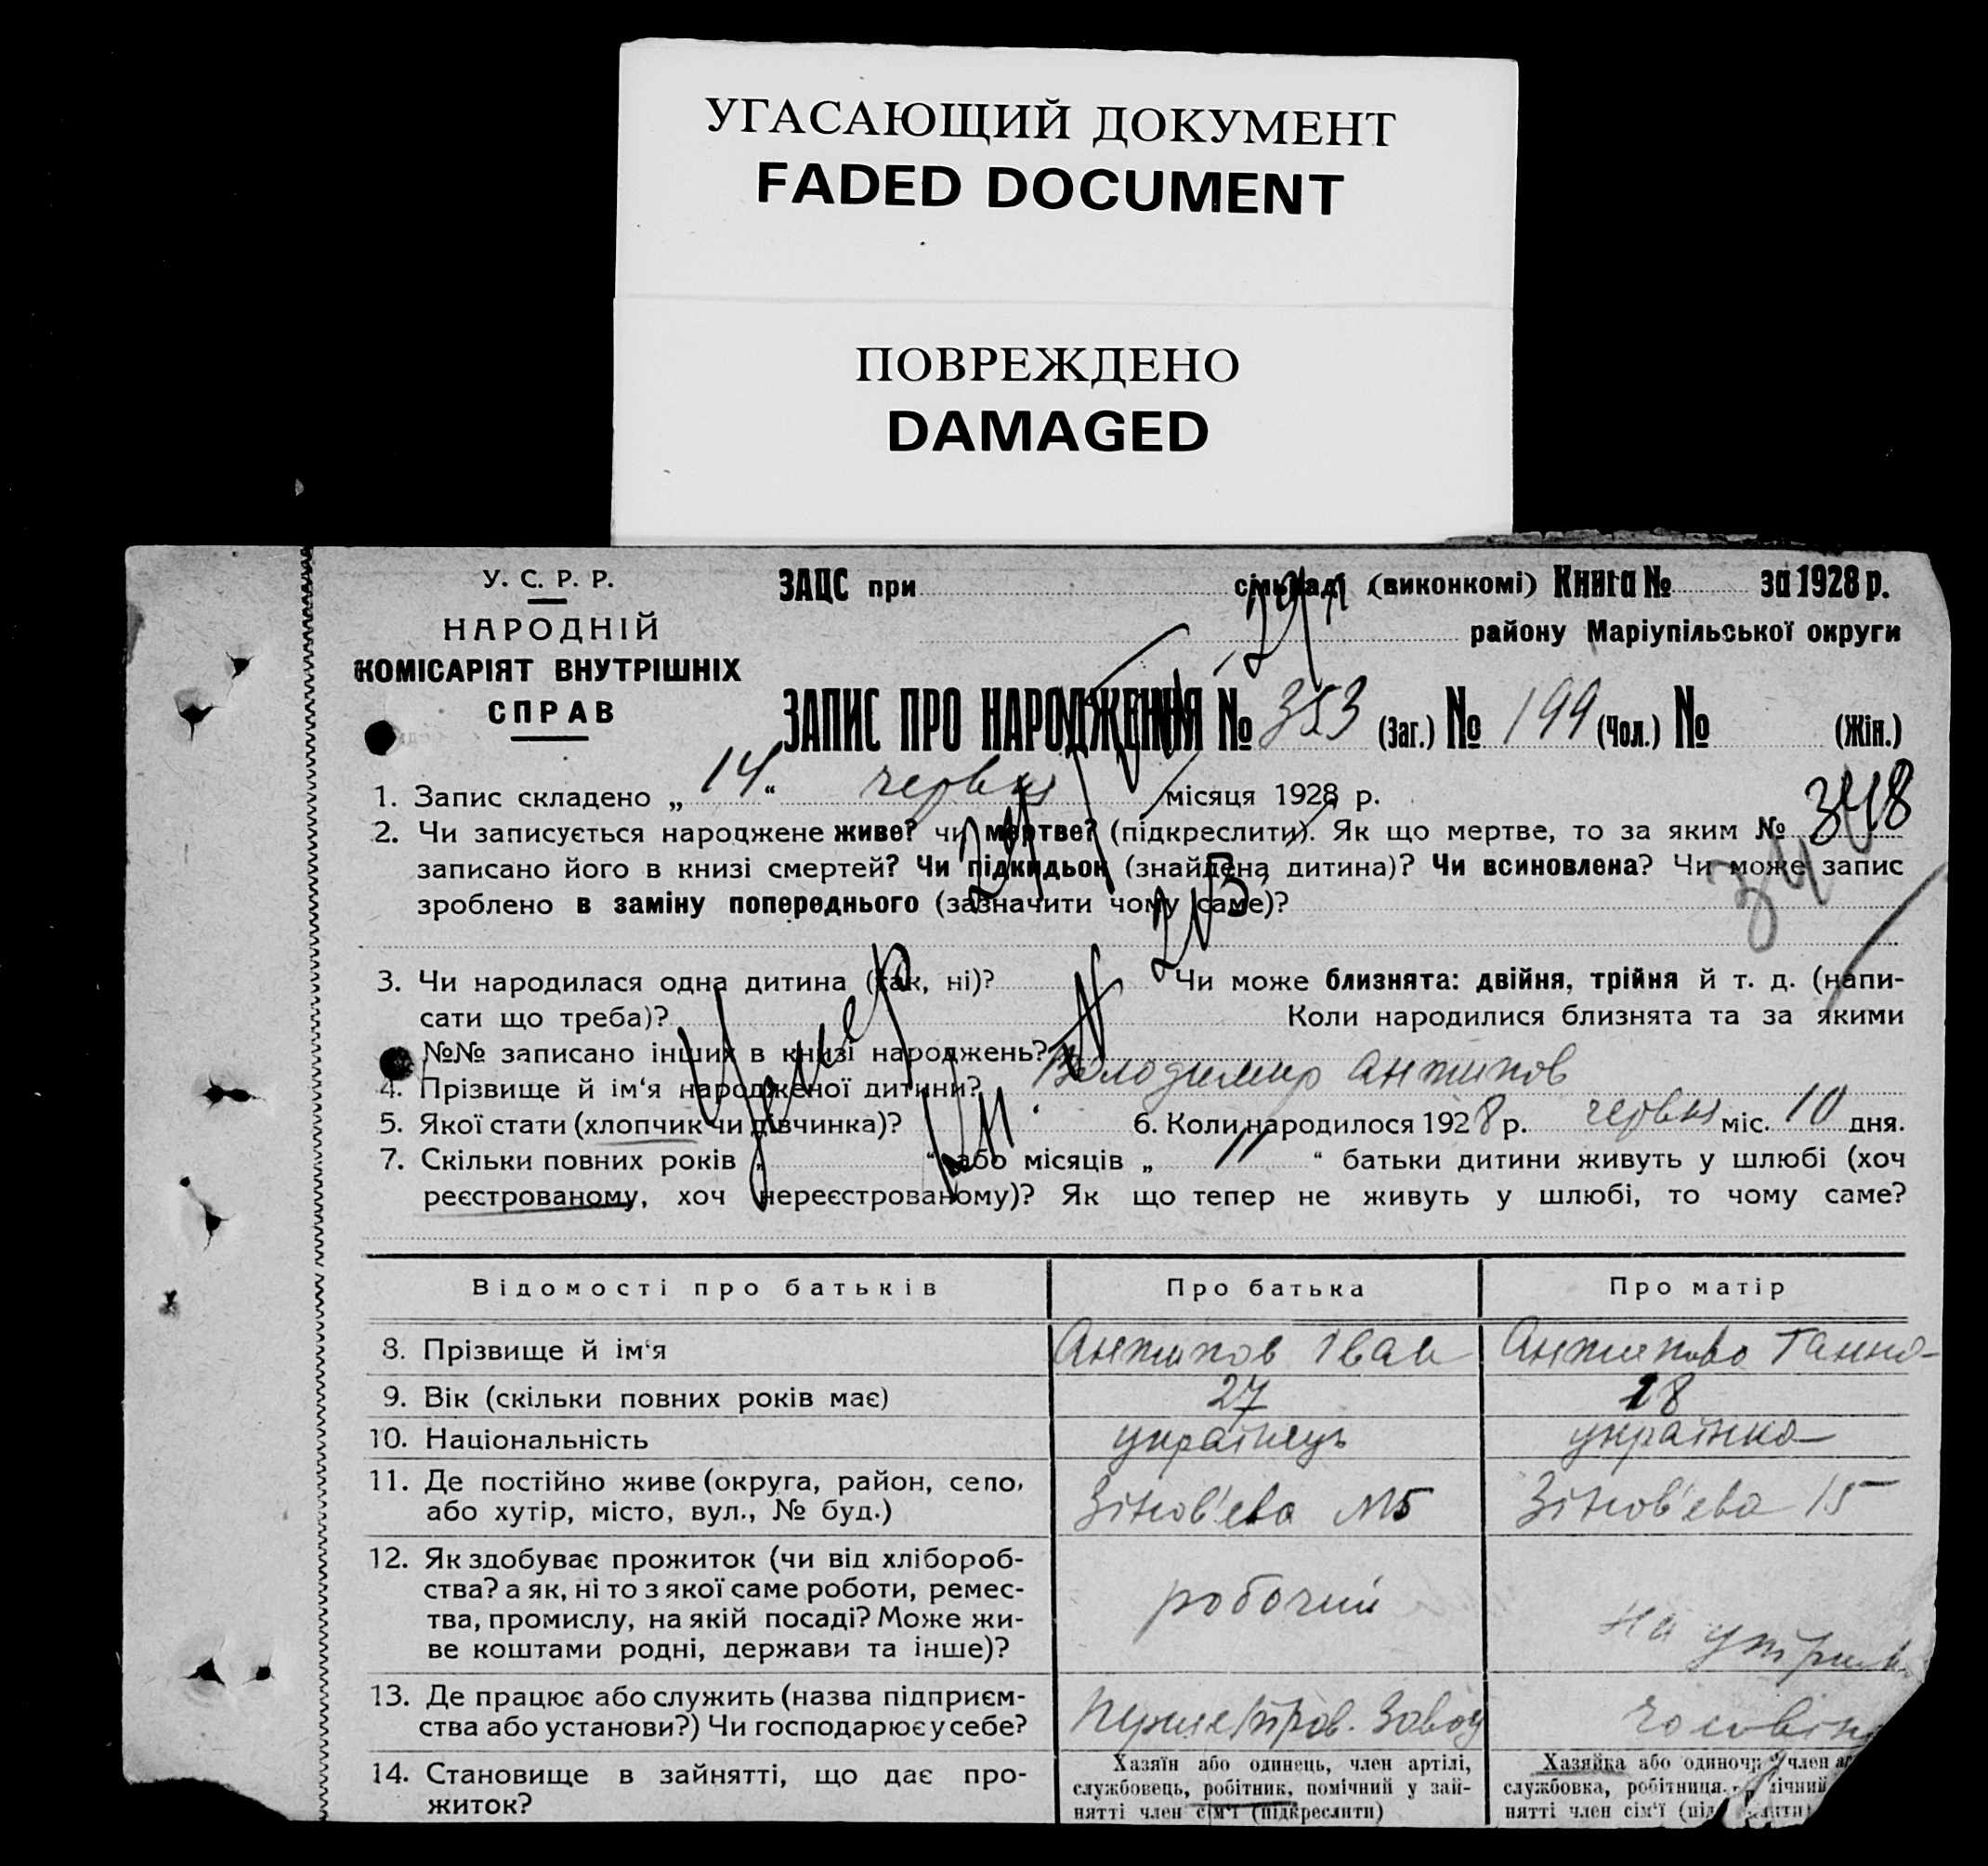 УГАСАЮЩИЙ ДОКУМЕНТ
FADED DOCUMENT
ПОВРЕЖДЕНО
DAMAGED
У. С. Р. Р.
НАРОДНІЙ
КОМІСАРІЯТ ВНУТРІШНІХ
СПРАВ
ЗАЦС при сільраді (виконкомі) Книга № за 1928 р.
району Маріупільської округи
ЗАПИС ПРО НАРОДЖЕННЯ № 353 (Заг.) № 199 (Чол.) № (Жін.)
1. Запис складено „ 14 “ червня місяця 1928 р.
348
2. Чи записується народжене живе? чи мертве? (підкреслити). Як що мертве, то за яким №
записано його в книзі смертей? Чи підкидьок (знайдена дитина)? Чи всиновлена? Чи може запис
зроблено в заміну попереднього (зазначити чому саме)?
3. Чи народилася одна дитина (так, ні)? Чи може близнята: двійня, трійня й т. д. (напи-
сати що треба)? Коли народилися близнята та за якими
№№ записано інших в книзі народжень?
Умер
4. Прізвище й ім‘я народженої дитини? Володимир Антипов
5. Якої стати (хлопчик чи дівчинка)? 6. Коли народилося 1928 р. червня міс. 10 дня.
7. Скільки повних років „ “ або місяців „ 11 “ батьки дитини живуть у шлюбі (хоч
реєстрованому, хоч нереєстрованому)? Як що тепер не живуть у шлюбі, то чому саме?
Відомості про батьків Про батька Про матір
8. Прізвище й ім‘я Антипов Іван Антипова Ганна
9. Вік (скільки повних років має) 27 28
10. Національність українець українка
11. Де постійно живе (округа, район, село,
або хутір, місто, вул., № буд.) Зінов'ева 15 Зінов'ева 15
12. Як здобуває прожиток (чи від хлібороб-
ства? а як, ні то з якої саме роботи, ремес-
тва, промислу, на якій посаді? Може жи-
ве коштами родні, держави та інше)? робочий на утрим
13. Де працює або служить (назва підприєм-
ства або установи?) Чи господарює у себе? Завод
14. Становище в зайнятті, що дає про-
житок?
Хазяїн або одинець, член артілі,
службовець, робітник, помічний у зай-
нятті член сім‘ї (підкреслити)
Хазяйка або одиноч член
службовка, робітниця,
нятті член сім‘ї